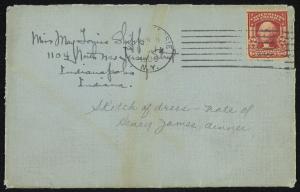 Miss May Louise Shipp
1104 North New Jersey Street
Indianapolis
Indiana.
Sketch of dress - note of
Henry James dinner
N.Y.